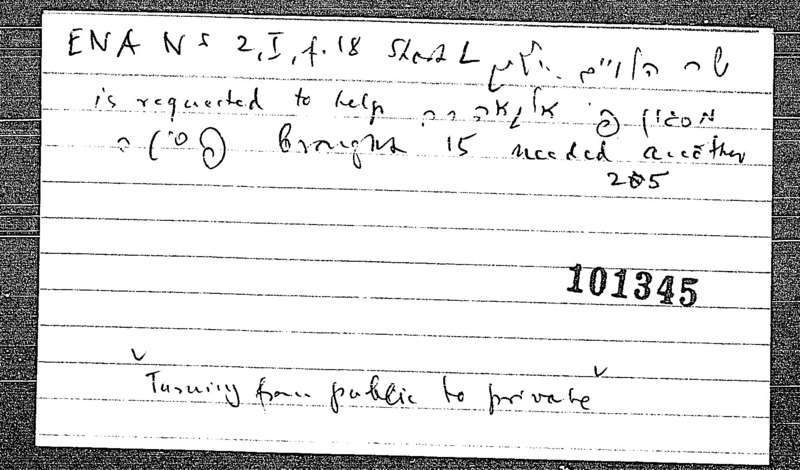 ENA NS 2, I, f. 18 Short L שר הלויים
is requested to help
brought 15 needed another
205
101345
Turning from public to private